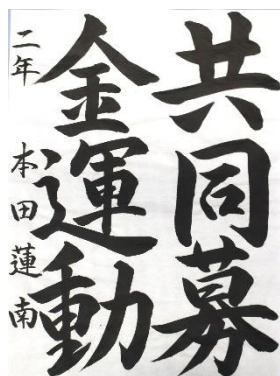 共同募
金運動
二年 本田蓮南